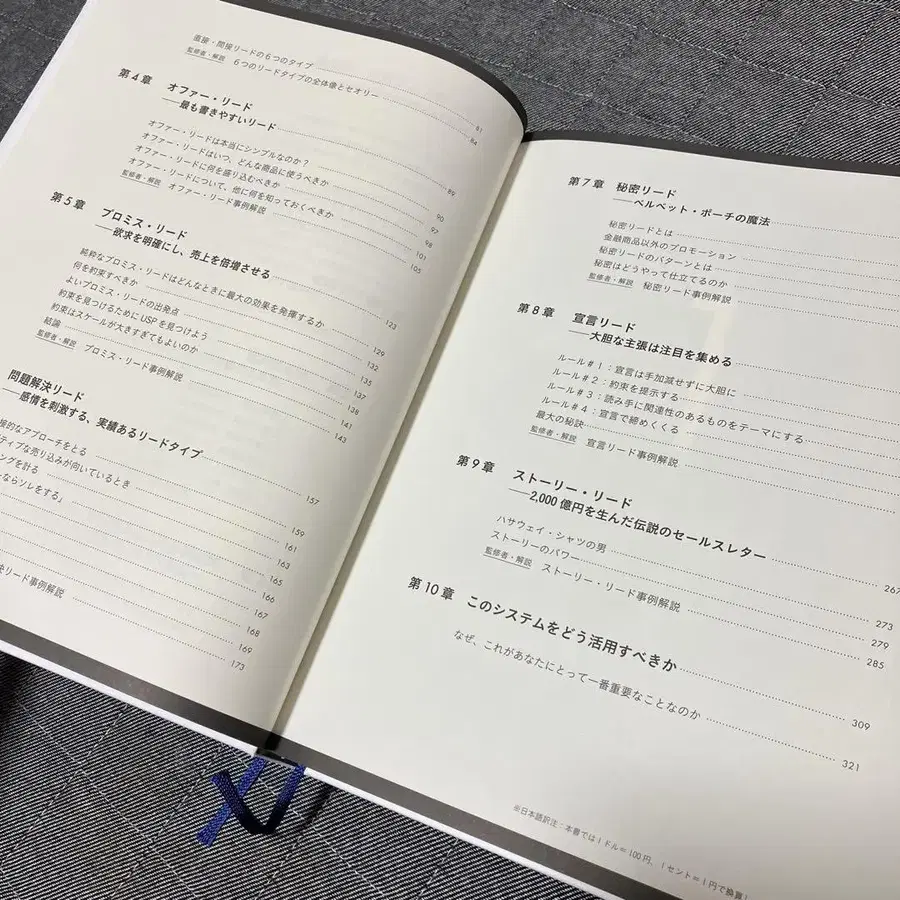 直接・間接リードの6つのタイプ
監修者・解説 6つのリードタイプの全体像とセオリー
81
84
第4章 オファー・リード
——最も書きやすいリード
オファー・リードは本当にシンプルなのか？ 89
オファー・リードはいつ、どんな商品に使うべきか 90
オファー・リードに何を盛り込むべきか 97
オファー・リードについて、他に何を知っておくべきか 98
監修者・解説 オファー・リード事例解説 101
105
第5章 プロミス・リード
——欲求を明確にし、売上を倍増させる
純粋なプロミス・リードはどんなときに最大の効果を発揮するか 123
何を約束すべきか 129
よいプロミス・リードの出発点 132
約束を見つけるためにUSPを見つけよう 135
約束はスケールが大きすぎてもよいのか 137
結論 138
監修者・解説 プロミス・リード事例解説 141
143
問題解決リード
——感情を刺激する、実績あるリードタイプ 157
的なアプローチをとる 159
ティブな売り込みが向いているとき 161
ングを計る 163
ーならソレをする」 165
166
167
168
リード事例解説 169
173
第7章 秘密リード
——ベルベット・ポーチの魔法
秘密リードとは
金融商品以外のプロモーション
秘密リードのパターンとは
秘密はどうやって仕立てるのか
監修者・解説 秘密リード事例解説
第8章 宣言リード
——大胆な主張は注目を集める
ルール＃1：宣言は手加減せずに大胆に
ルール＃2：約束を提示する
ルール＃3：読み手に関連性のあるものをテーマにする
ルール＃4：宣言で締めくくる
最大の秘訣
監修者・解説 宣言リード事例解説
第9章 ストーリー・リード
——2,000億円を生んだ伝説のセールスレター 267
ハサウェイ・シャツの男 273
ストーリーのパワー 279
監修者・解説 ストーリー・リード事例解説 285
第10章 このシステムをどう活用すべきか 309
なぜ、これがあなたにとって一番重要なことなのか 321
※日本語訳注：本書では1ドル＝100円、1セント＝1円で換算